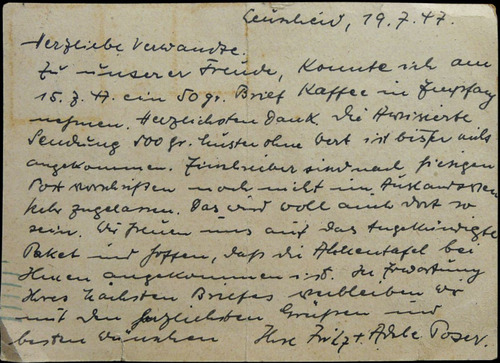 19.7.47.
Herzliebe Verwandte.
Zu unserer Freude, konnte ich am
15.7.47 ein 50 gr. Brief Kaffee in Empfang
nehmen. Herzlichsten Dank. Die Avisierte
Sendung 500 gr. Muster ohne Wert ist bisher nicht
angekommen. Einschreiber sind nach hiesigen
Postvorschriften noch nicht im Auslandsver-
kehr zugelassen. Das wird woll auch dort so
sein. Wir freuen uns auf das Angekündigte
Paket und hoffen, daß die Ahnentafel bei
Ihnen angekommen ist. In Erwartung
Ihres nächsten Briefes verbleiben wir
mit den herzlichsten Grüßen und
besten Wünschen Ihre Fritz + Adele Poser.